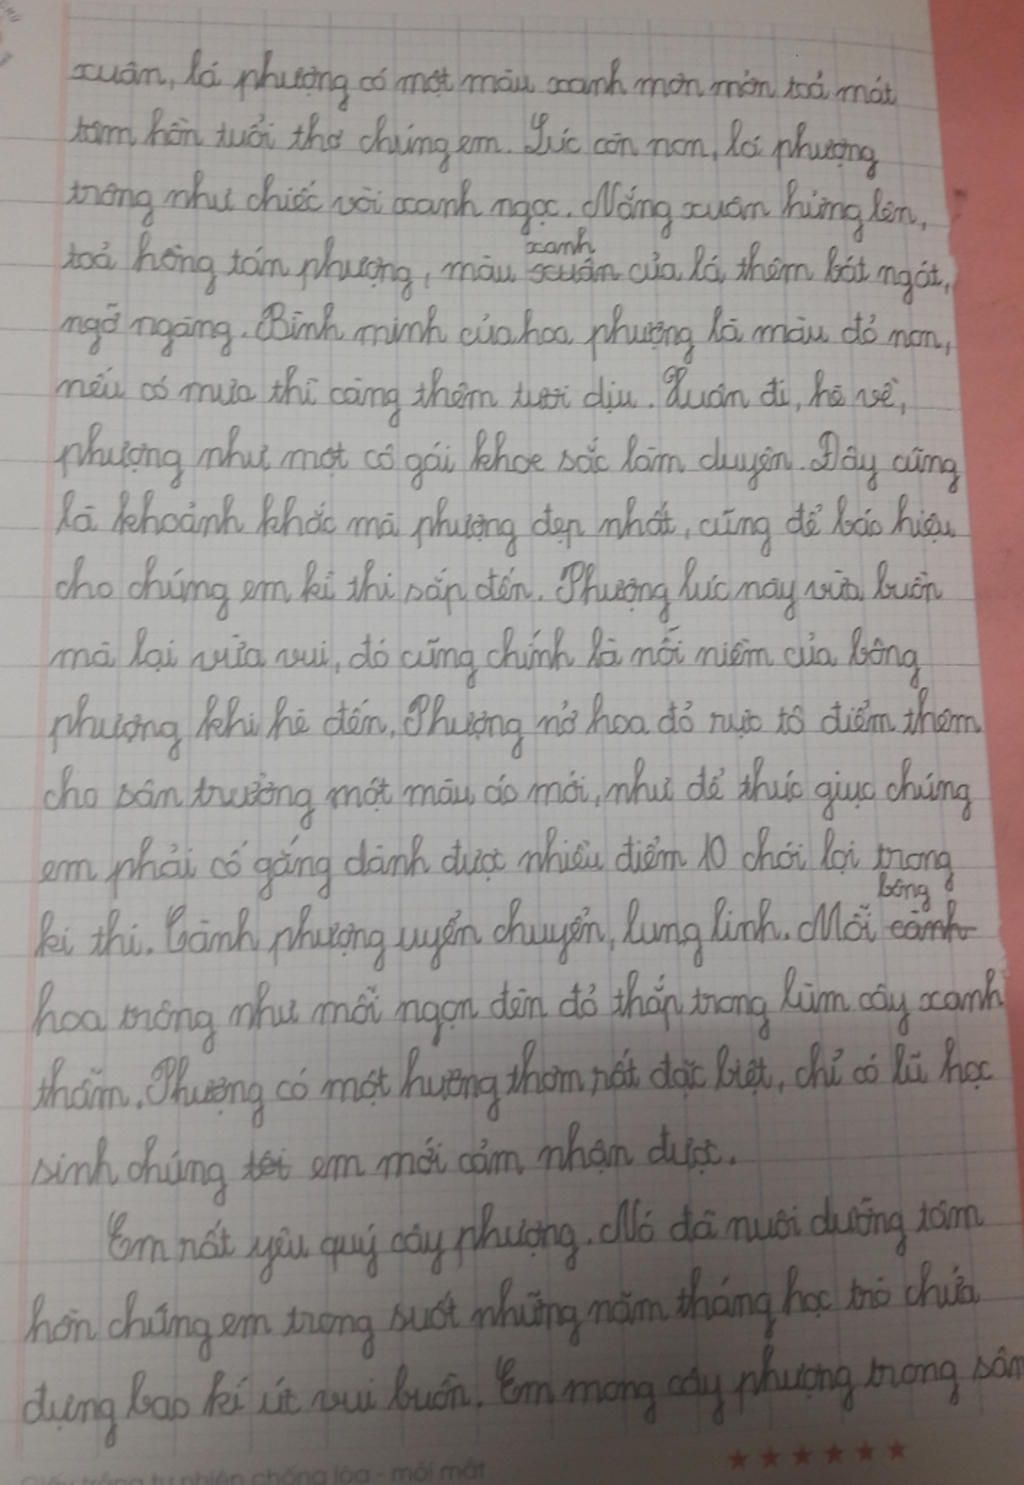 xuân, lá phượng có một màu xanh mơn mởn toả mát
tâm hồn tuổi thơ chúng em. Lúc còn non, lá phượng
trông như chiếc vòi xanh ngọc. Nắng xuân hửng lên,
xanh
toả hồng tán phượng, màu xuân của lá thêm bát ngát,
ngỡ ngàng. Bình minh của hoa phượng là màu đỏ non,
nếu có mưa thì càng thêm tươi dịu. Xuân đi, hè về,
phượng như một cô gái khoe sắc làm duyên. Đây cũng
là khoảnh khắc mà phượng đẹp nhất, cũng để báo hiệu
cho chúng em kì thi sắp đến. Phượng lúc này vừa buồn
mà lại vừa vui, đó cũng chính là nỗi niềm của bông
phượng khi hè đến. Phượng nở hoa đỏ rực tô điểm thêm
cho sân trường một màu áo mới, như để thúc giục chúng
em phải cố gắng dành được nhiều điểm 10 chói lọi trong
bông
kì thi. Cành phượng uyển chuyển, lung linh. Mỗi cành
hoa trông như mỗi ngọn đèn đỏ thắp trong lùm cây xanh
thẫm. Phượng có một hương thơm rất đặc biệt, chỉ có lũ học
sinh chúng tôi em mới cảm nhận được.
Em rất yêu quý cây phượng. Nó đã nuôi dưỡng tâm
hồn chúng em trong suốt những năm tháng học trò chứa
đựng bao kí ức vui buồn. Em mong cây phượng trong sân
chống lóa - mỏi mắt